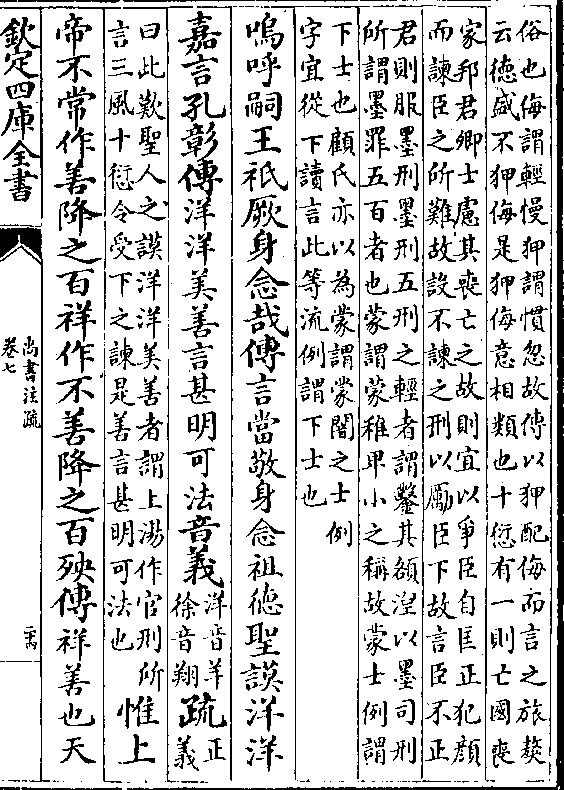 俗也侮謂輕慢狎謂慣忽故傳以狎配侮而言之旅獒
云德盛不狎侮是狎侮意相類也十愆有一則亡國喪
家邦君卿士慮其喪亡之故則宜以爭臣自匡正犯顔
而諫臣之所難故設不諫之刑以勵臣下故言臣不正
君則服墨刑墨刑五刑之輕者謂鑿其額涅以墨司刑
所謂墨罪五百者也蒙謂蒙稚卑小之稱故蒙士例謂
下士也顧氏亦以為蒙謂蒙闇之士例
字宜從下讀言此等流例謂下士也
嗚呼嗣王祗厥身念哉傳言當敬身念祖徳聖謨洋洋
嘉言孔彰傳洋洋美善言甚明可法音義洋音羊徐音翔疏正義
曰此歎聖人之謨洋洋美善者謂上湯作官刑所
言三風十愆令受下之諫是善言甚明可法也惟上
帝不常作善降之百祥作不善降之百殃傳祥善也天
欽定四庫全書
尚書注疏
卷七